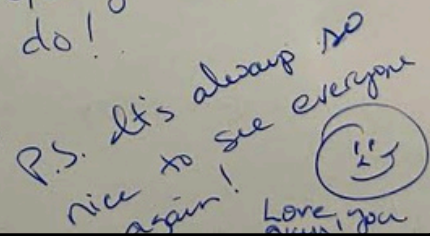 do!
P.S. It's always so
nice to see everyone
again!
Love, you